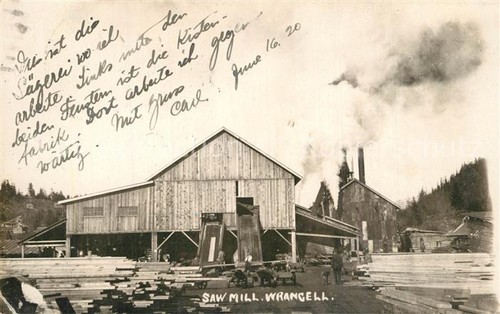 Dis ist die
Sägerei wo ich
arbeite. Links mit den
beiden Fenstern ist die Kisten-
fabrik. Dort arbeite ich gegen
wärtig. Mit Gruss
Carl.
June 16. 20
SAW MILL. WRANGELL.